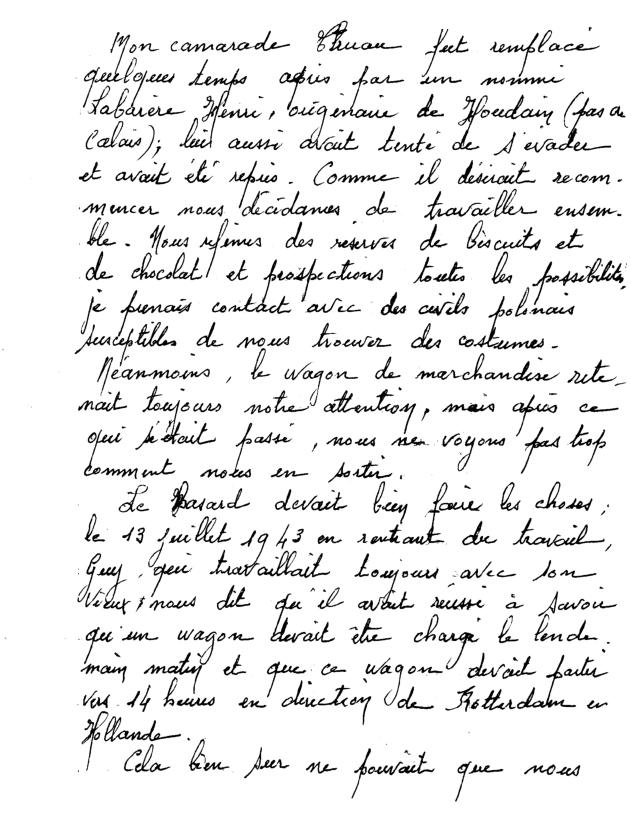 Mon camarade Thuau fut remplacé
quelques temps après par un nommé
Labarère Henri, originaire de Houdain (pas de
Calais); lui aussi avait tenté de s'évader
et avait été repris. Comme il désirait recom-
mencer nous décidames de travailler ensem-
ble. Nous refimes des reserves de biscuits et
de chocolat et prospections toutes les possibilités,
je prenais contact avec des civils polonais
susceptibles de nous trouver des costumes.
Néanmoins, le wagon de marchandise rete-
nait toujours notre attention, mais après ce
qui s'était passé, nous ne voyons pas trop
comment nous en sortir.
Le hasard devait bien faire les choses;
le 13 juillet 1943 en rentrant du travail,
Guy, qui travaillait toujours avec son
vieux, nous dit qu'il avait réussi à savoir
qu'un wagon devait être chargé le lende-
main matin et que ce wagon devait partir
vers 14 heures en direction de Rotterdam en
Hollande.
Cela bien sur ne pouvait que nous